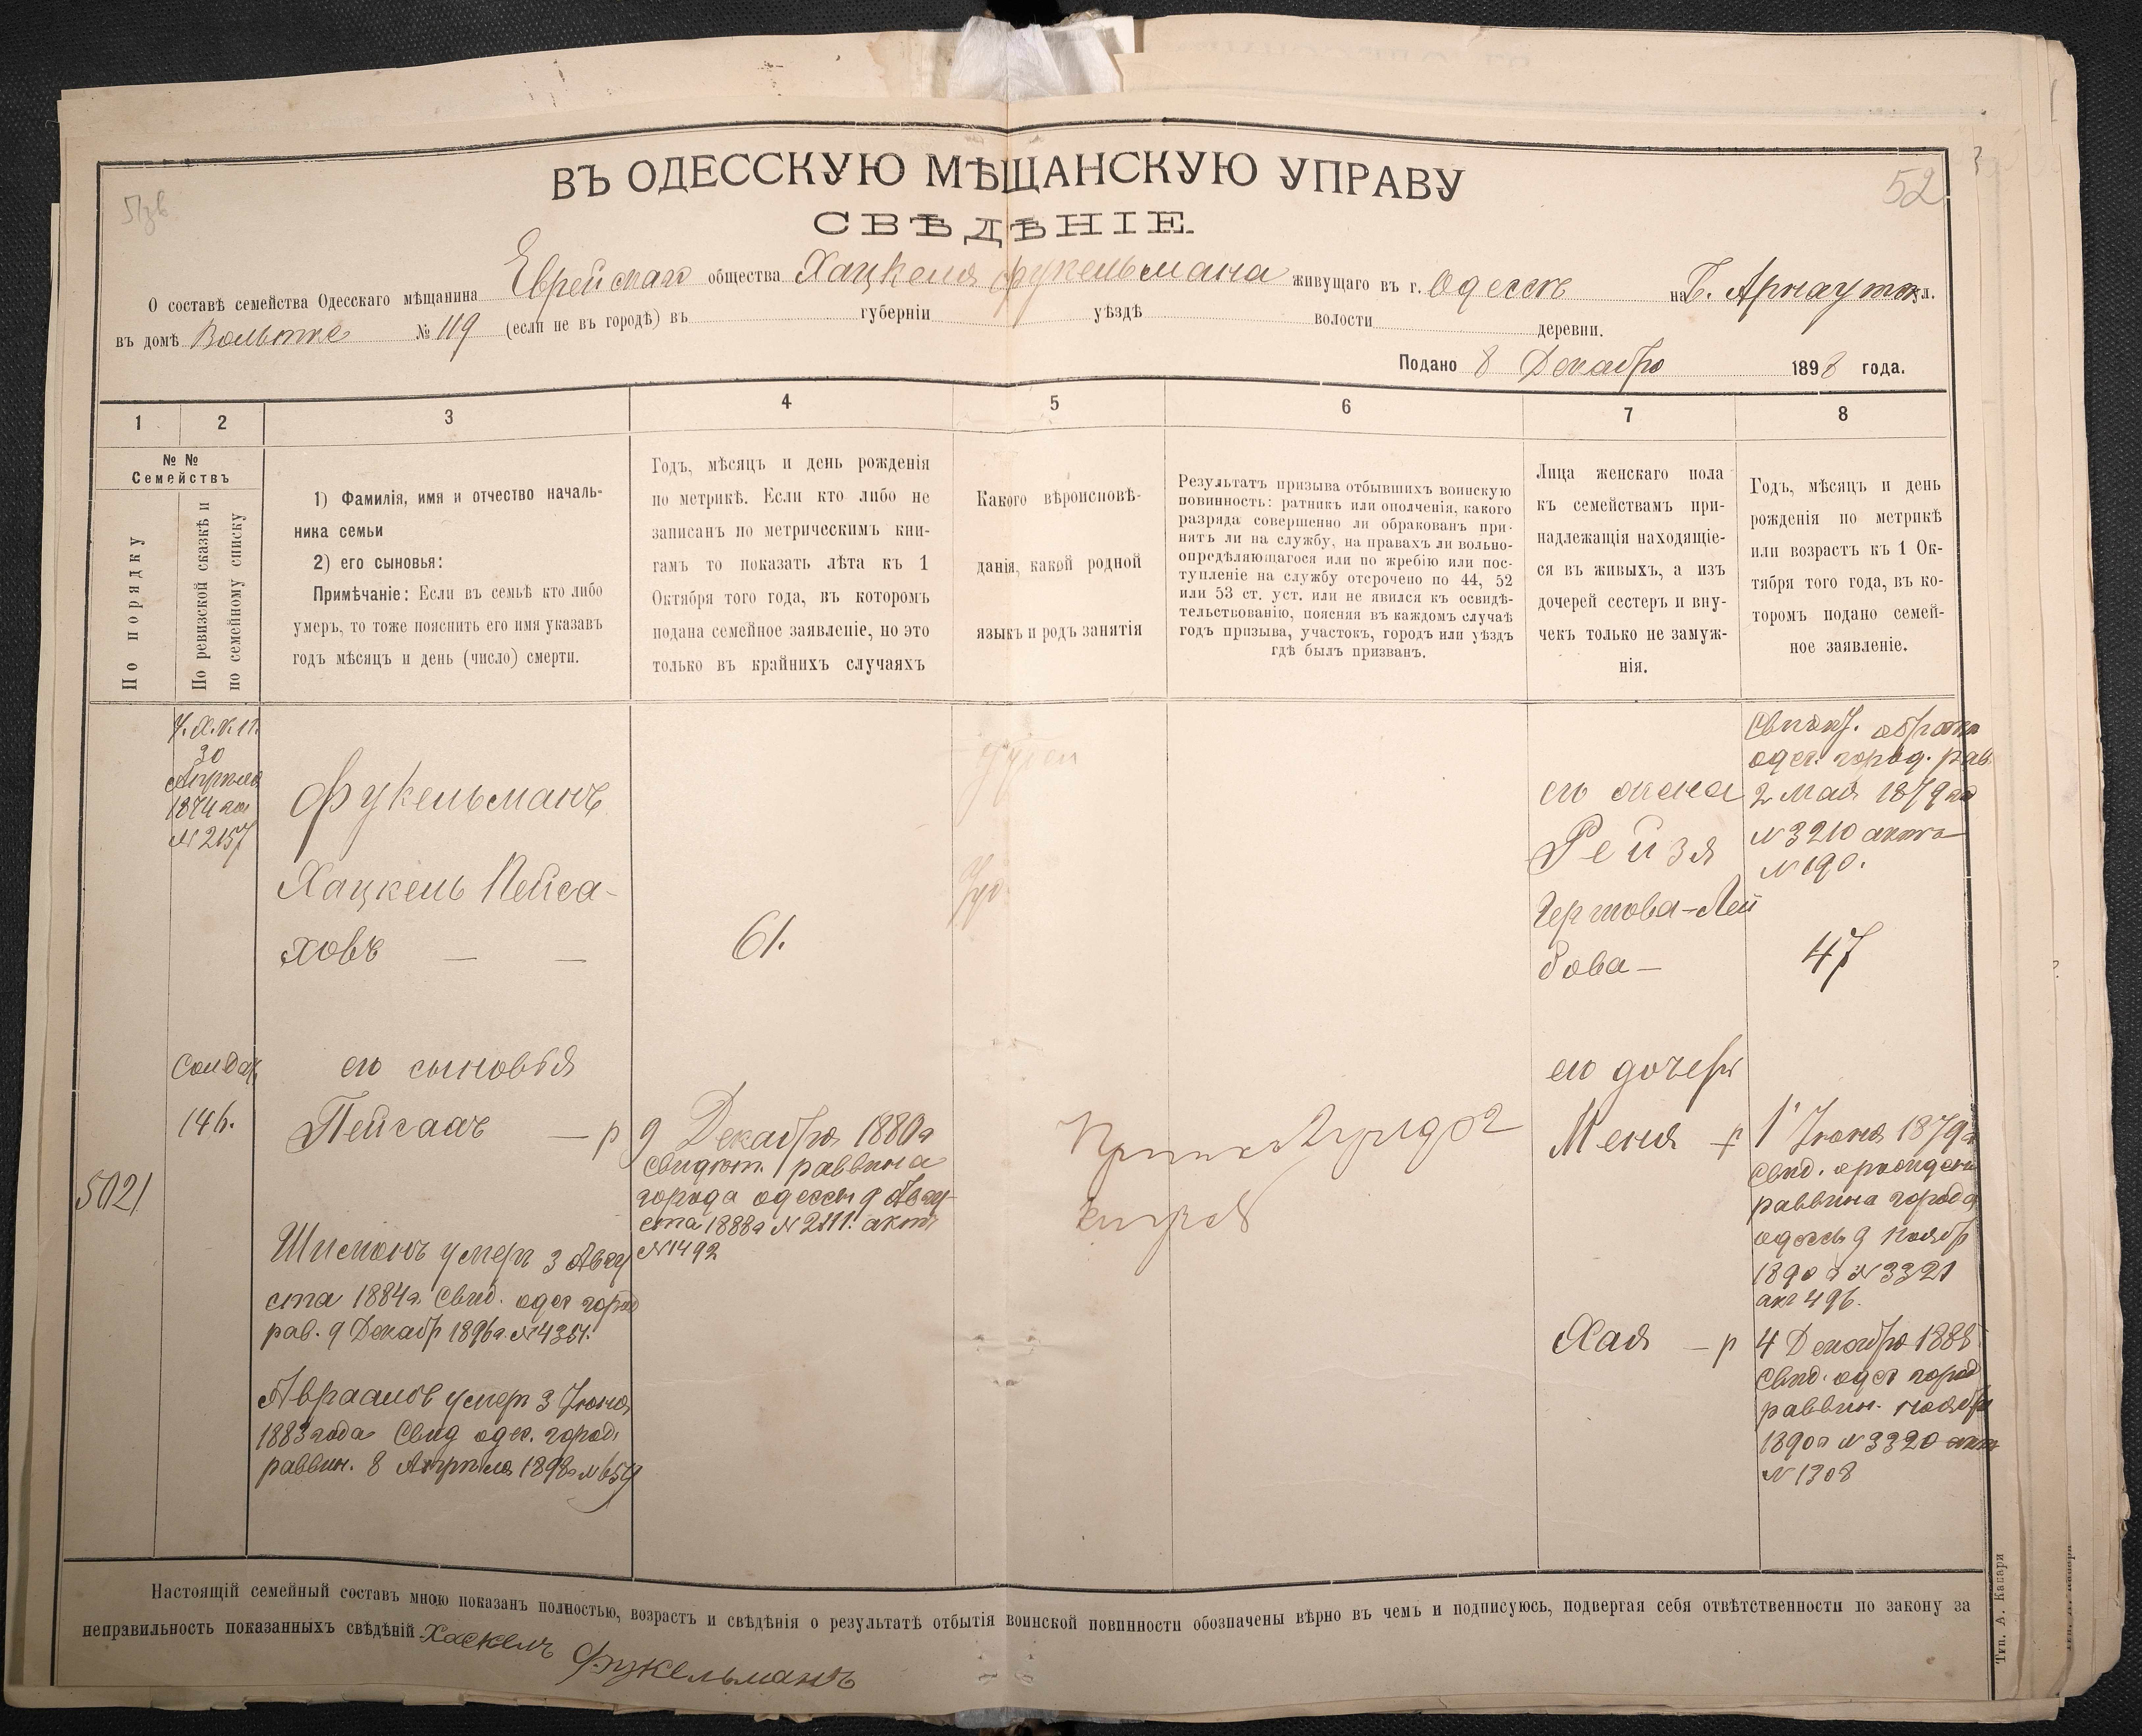 ВЪ ОДЕССКУЮ МѢЩАНСКУЮ УПРАВУ
52
СВѢДѢНІЕ.
О составѣ семейства Одесскаго мѣщанина Еврейскаго общества Хацкеля Фукельмана живущаго въ г. Одессѣ на Б. Арнаутск ул.
въ домѣ № 119 (если не въ городѣ) въ губерніи уѣздѣ волости деревни.
Подано 8 Декабря 1898 года.
1 2 3 4 5 6 7 8
№ № Семействъ
По порядку
По ревизской сказкѣ и
по семейному списку
1) Фамилія, имя и отчество началь-
ника семьи
2) его сыновья:
Примѣчаніе: Если въ семьѣ кто либо
умеръ, то тоже пояснить его имя указавъ
годъ мѣсяцъ и день (число) смерти.
Годъ, мѣсяцъ и день рожденія
по метрикѣ. Если кто либо не
записанъ по метрическимъ кни-
гамъ то показать лѣта къ 1
Октября того года, въ которомъ
подана семейное заявленіе, но это
только въ крайнихъ случаяхъ
Какого вѣроисповѣ-
данія, какой родной
языкъ и родъ занятія
Результатъ призыва отбывшихъ воинскую
повинность: ратникъ или ополченія, какого
разряда совершенно ли обракованъ при-
нятъ ли на службу, на правахъ ли вольно-
опредѣляющагося или по жребію или пос-
тупленіе на службу отсрочено по 44, 52
или 53 ст. уст. или не явился къ освидѣ-
тельствованію, поясняя въ каждомъ случаѣ
годъ призыва, участокъ, городъ или уѣздъ
гдѣ былъ призванъ.
Лица женскаго пола
къ семействамъ при-
надлежащія находящіе-
ся въ живыхъ, а изъ
дочерей сестеръ и вну-
чекъ только не замуж-
нія.
Годъ, мѣсяцъ и день
рожденія по метрикѣ
или возрастъ къ 1 Ок-
тября того года, въ ко-
торомъ подано семей-
ное заявленіе.
30
Апрѣля
1874 г
№ 2157
Фукельманъ
Хацкель Пейса-
ховъ — —
61.
его жена
Рейзя
Гершова-Лей
бова —
одес. город. рав.
2 Мая 1879 год
№ 3210 акта
№ 190.
47
Солдат.
146.
5021
его сыновья
Пейсахъ — р
9 Декабря 1880 г
свидѣт. раввина
города одессы 9 Авгу-
ста 1888 г № 2111. актъ
№ 1492
Шимонъ умеръ 3 Авгу
ста 1884 г. Свид. одес город
рав. 9 Декабр 1896 г. № 4354.
Авраамъ умеръ 3 Іюня
1883 года Свид одес. город.
раввин. 8 Апрѣля 1898 г № 659
его дочери
Меня — р
1 Іюня 1879 г
Свид.
раввина города
одессы 9 Ноябр
1890 г № 3321
акт 496.
Хая — р
4 Декабря 1888
Свид. одес город
раввин. ноября
1890 г № 3320 акт
№ 1308
Настоящій семейный составъ мною показанъ полностью, возрастъ и свѣдѣнія о результатѣ отбытія воинской повинности обозначены вѣрно въ чемъ и подписуюсь, подвергая себя отвѣтственности по закону за
неправильность показанныхъ свѣдѣній Хаскель Фукельманъ
Тип. А. Кацари